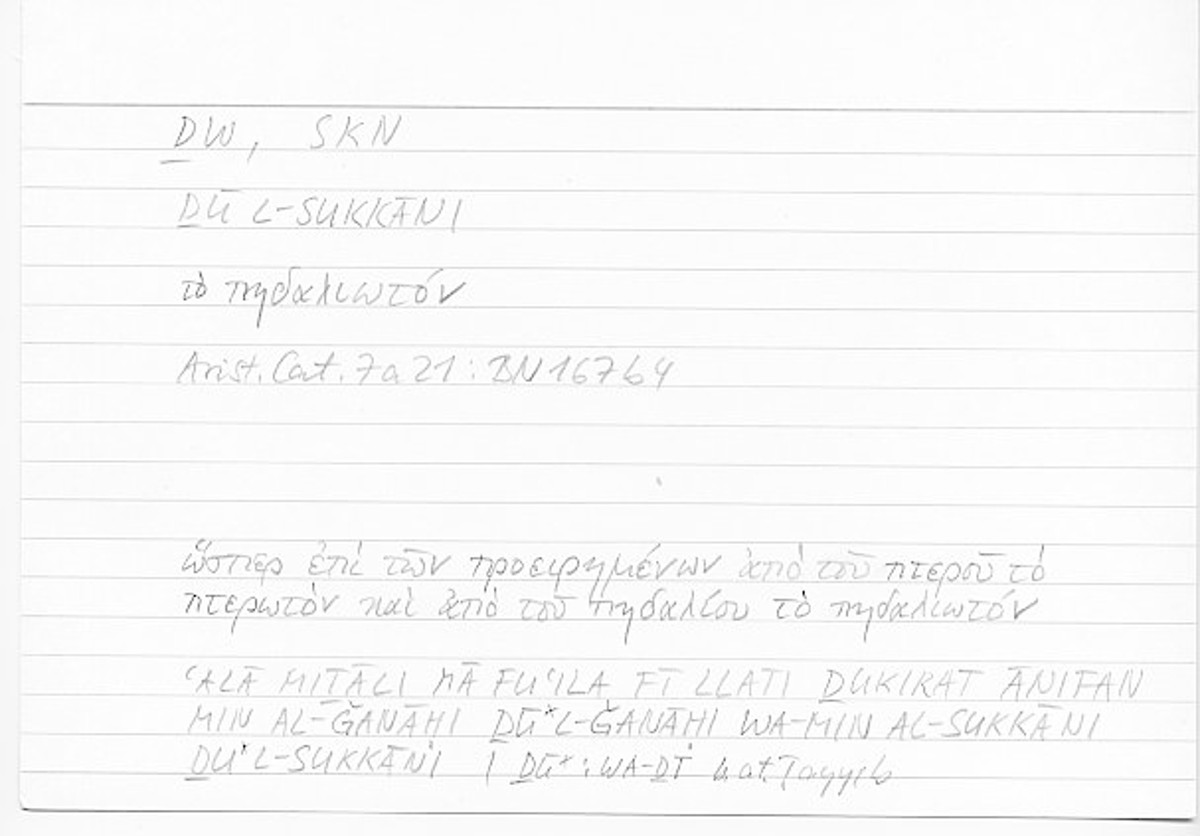 ḎW, SKN
ḎŪ L-SUKKĀNI
τὸ πηδαλιωτόν
Arist. Cat. 7a21 : BN 16764
ὥσπερ ἐπὶ τῶν προειρημένων ἀπὸ τοῦ πτεροῦ τὸ
πτερωτὸν καὶ ἀπὸ τοῦ πηδαλίου τὸ πηδαλιωτόν
ʿALĀ MIṮĀLI MĀ FUʿILA FĪ LLATI ḎUKIRAT ĀNIFAN
MIN AL-ǦANĀḤI ḎŪ* L-ǦANĀḤI WA-MIN AL-SUKKĀNI
ḎŪ* L-SUKKĀNI | ḎŪ* : WA-ḎĪ Ṭayyib